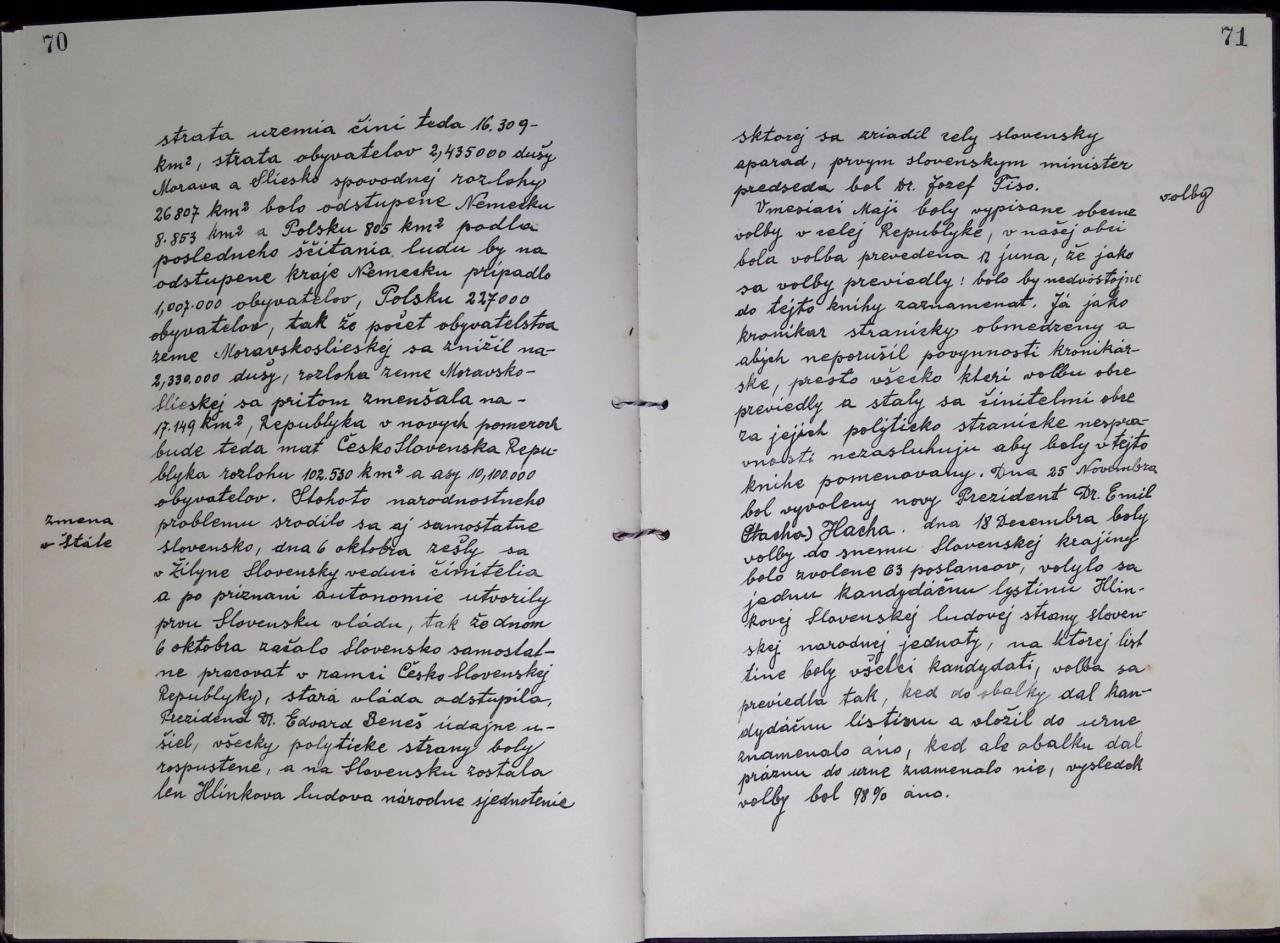 70
strata uzemia činí teda 16.309-
km², strata obyvatelov 2,435000 dušy
Morava a Sliesko spovodnej rozlohy
26807 km² bolo odstupene Německu
8.853 km² a Polsku 805 km² podla
posledneho ščitania ludu by na
odstupene kraje Německu pripadlo
1,007.000 obyvatelov, Polsku 227000
obyvatelov, tak že počet obyvatelstva
zeme Moravskoslieskej sa znižil na-
2,330.000 dušy, rozloha zeme Moravsko-
Slieskej sa pritom zmenšala na-
17.149 km², Republyka v novych pomeroch
bude teda mat ČeskoSlovenska Repu-
blyka rozlohu 102.530 km² a asy 10,100.000
obyvatelov. Stohoto narodnostneho
zmena
v Štáte
problemu zrodilo sa aj samostatne
slovensko, dna 6 oktobra zešly sa
v Žilyne Slovensky veduci činitelia
a po priznani autonomie utvorily
prvu Slovensku vládu, tak že dnom
6 oktobra začalo Slovensko samostat-
ne pracovat v ramci ČeskoSlovenskej
Republyky, stará vláda odstupila,
Prezidend Dr. Edvard Beneš údajne u-
šiel, všecky polyticke strany boly
rospustene, a na Slovensku zostala
len Hlinkova ludova národne sjednotenie
71
sktorej sa zriadil cely slovensky
aparad, prvym slovenskym minister
predseda bol Dr. Jozef Tiso.
volby
Vmesiaci Maji boly vypisane obecne
volby v celej Republyke, v našej obci
bola volba prevedena 12 juna, že jako
sa volby previadly! bolo by nedvôstojne
do tejto knihy zaznamenat. Já jako
kronikar stranicky obmedzeny a
abych neporušil povynnosti kronikár-
ske, presto všecko kteri volbu obce
previedly a staly sa činitelmi obce
za jejich polyticko stranicke nespra-
vnosti nezasluhuju aby boly v tejto
knihe pomenovany. Dna 25 Novembra
bol vyvoleny novy Prezident Dr. Emil
(Hacha) Hacha. dna 18 Decembra boly
volby do snemu Slovenskej krajiny
bolo zvolene 63 poslancov, volylo sa
jednu kandydáčnu lystinu Hlin-
kovej Slovenskej ludovej strany sloven-
skej narodnej jednoty, na ktorej list
tine boly všetci kandydati, volba sa
previedla tak, ked do obalky dal kan-
dydáčnu listinu a vložil do urne
znamenalo áno, ked ale obalku dal
práznu do urne znamenalo nie, vysledok
volby bol 98% áno.